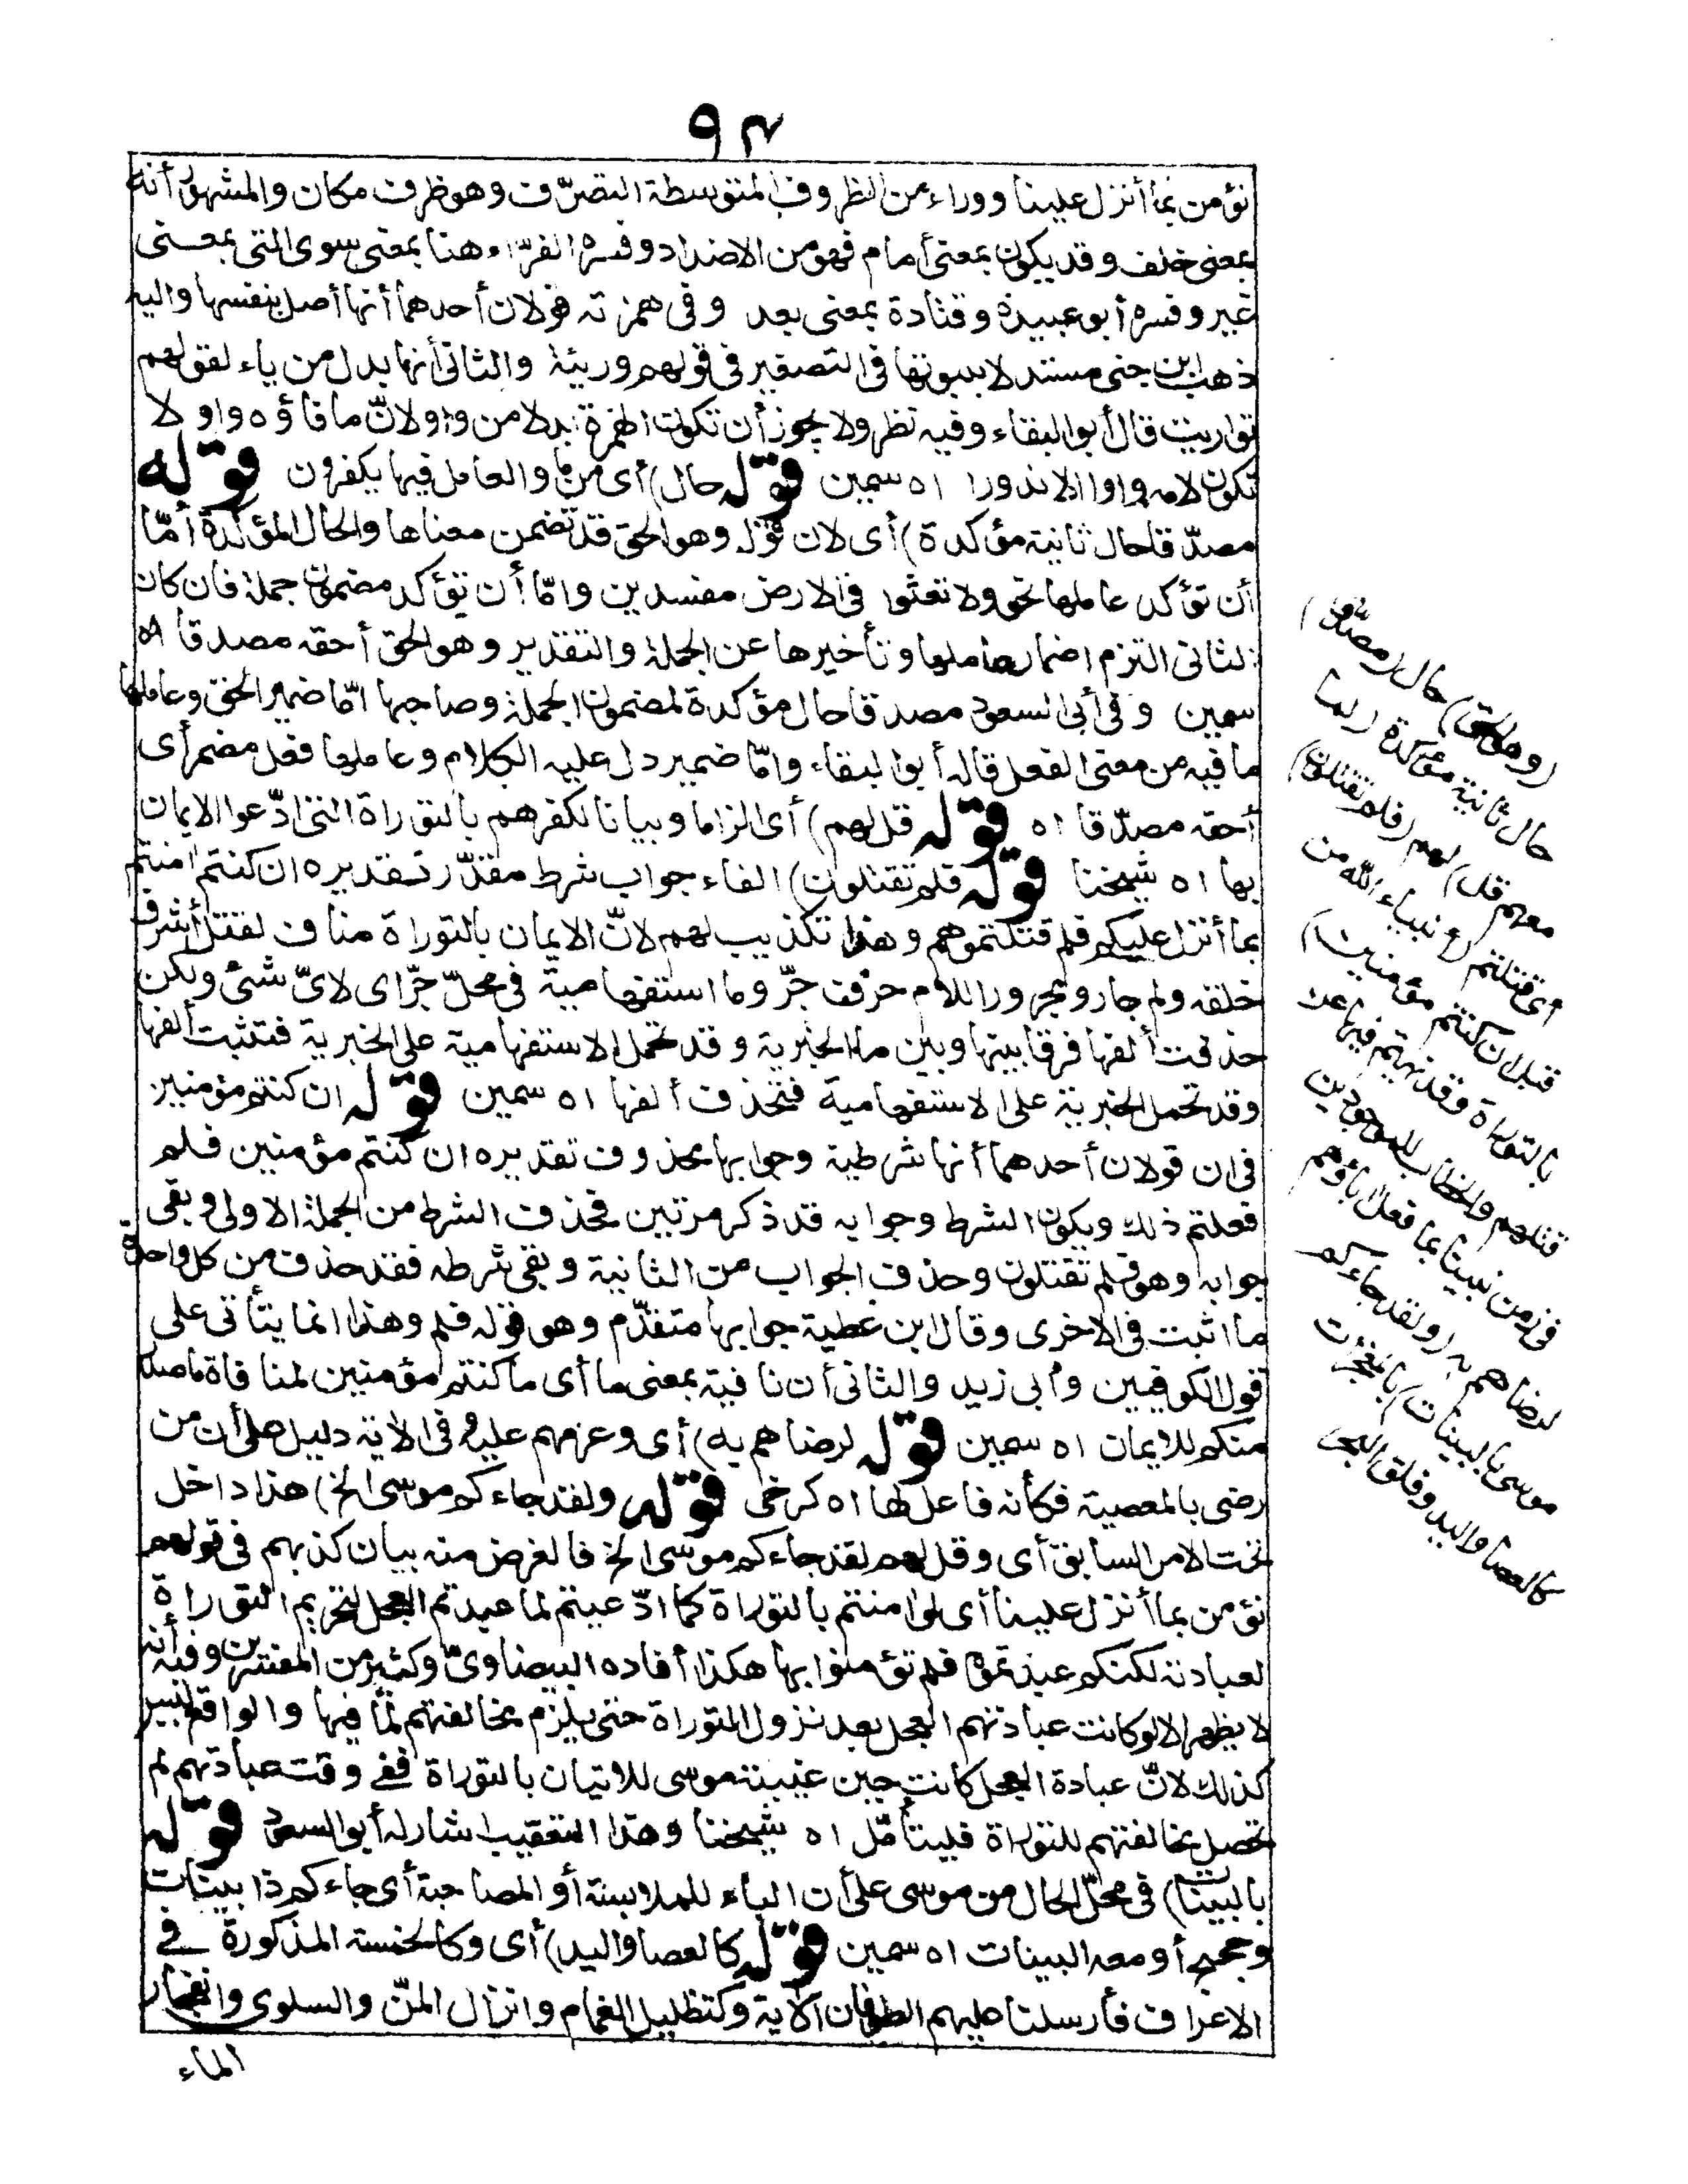 ٩٣
نؤمن بما أنزل علينا ووراء من الظروف المتوسطة التصرّف وهو ظرف مكان والمشهور أنه
بمعنى خلف وقد يكون بمعنى أمام فهو من الاضداد وفسره الفرّاء هنا بمعنى سوى التى بمعنى
غير وفسره أبو عبيدة وقتادة بمعنى بعد وفى همزته قولان أحدهما أنها أصل بنفسها واليه
ذهب ابن جنى مستدلا بثبوتها فى التصغير فى قولهم وريئة والثانى أنها بدل من ياء لقولهم
تواريت قال أبو البقاء وفيه نظر ولا يجوز أن تكون الهمزة بدلا من واو لانّ ما فاؤه واو لا
تكون لامه واوا الا ندورا اه سمين قوله حال) أى من ما والعامل فيها يكفرون قوله
مصدّقا حال ثانية مؤكدة) أى لان قوله وهو الحق قد تضمن معناها والحال المؤكدة أمّا
أن تؤكد عاملها نحو ولا تعثوا فى الارض مفسدين وامّا أن تؤكد مضمون جملة فان كان
الثانى التزم اضمار عاملها وتأخيرها عن الجملة والتقدير وهو الحق أحقه مصدقا اه
سمين وفى أبى السعود مصدقا حال مؤكدة لمضمون الجملة وصاحبها امّا ضمير الحق وعاملها
ما فيه من معنى الفعل قاله أبو البقاء وامّا ضمير دل عليه الكلام وعاملها فعل مضمر أى
أحقه مصدّقا اه قوله قل لهم) أى الزاما وبيانا لكفرهم بالتوراة التى ادّعوا الايمان
بها اه شيخنا قوله فلم تقتلون) الفاء جواب شرط مقدّر تقديره ان كنتم آمنتم
بما أنزل عليكم فلم قتلتموهم وهذا تكذيب لهم لانّ الايمان بالتوراة مناف لقتل أشرف
خلقه ولم جار ومجرور اللام حرف جرّ وما استفهامية فى محلّ جرّ اى لاىّ شئ ولكن
حذفت ألفها فرقا بينها وبين ما الخبرية وقد تحمل الاستفهامية على الخبرية فتثبت ألفها
وقد تحمل الخبرية على الاستفهامية فتحذف ألفها اه سمين قوله ان كنتم مؤمنين
فى ان قولان أحدهما أنها شرطية وجوابها محذوف تقديره ان كنتم مؤمنين فلم
فعلتم ذلك ويكون الشرط وجوابه قد ذكر مرتين فحذف الشرط من الجملة الاولى وبقى
جوابه وهو فلم تقتلون وحذف الجواب من الثانية وبقى شرطه فقد حذف من كل واحدة
ما اثبت فى الاخرى وقال ابن عطية جوابها متقدّم وهو قوله فلم وهذا انما يتأتى على
قول الكوفيين وأبى زيد والثانى أن نافية بمعنى ما أى ما كنتم مؤمنين لمنافاة ما صدر
منكم للايمان اه سمين قوله لرضاهم به) أى وعزمهم عليه وفى الآية دليل على أن من
رضى بالمعصية فكأنه فاعل لها اه كرخى قوله ولقد جاءكم موسى الخ) هذا داخل
تحت الامر السابق أى وقل لهم لقد جاءكم موسى الخ فالغرض منه بيان كذبهم فى قولهم
نؤمن بما أنزل علينا أى لو آمنتم بالتوراة كما ادّعيتم لما عبدتم العجل لتحريم التوراة
لعبادته لكنكم عبدتموه فلم تؤمنوا بها هكذا أفاده البيضاوىّ وكثير من المفسرين وفيه أنه
لا يظهر الا لو كانت عبادتهم العجل بعد نزول التوراة حتى يلزم مخالفتهم لما فيها والواقع ليس
كذلك لانّ عبادة العجل كانت حين غيبة موسى للاتيان بالتوراة ففى وقت عبادتهم لم
تحصل مخالفتهم للتوراة فليتأمّل اه شيخنا وهذا التعقيب اشار له أبو السعود قوله
بالبينات) فى محلّ الحال من موسى على أن الباء للملابسة أو المصاحبة أى جاءكم ذا بينات
وحجج أو معه البينات اه سمين قوله كالعصا واليد) أى وكالخمسة المذكورة فى
الاعراف فأرسلنا عليهم الطوفان الآية وكتظليل الغمام وانزال المنّ والسلوى وانفجار
الماء
(وهو الحق) حال (مصدّقا)
حال ثانية مؤكدة (لما
معهم قل) لهم (فلم تقتلون)
أى قتلتم (أنبياء الله من
قبل ان كنتم مؤمنين)
بالتوراة وقد نهيتم فيها عن
قتلهم والخطاب للموجودين
فى زمن نبينا بما فعل آباؤهم
لرضاهم به (ولقد جاءكم
موسى بالبينات) بالمعجزات
كالعصا واليد وفلق البحر